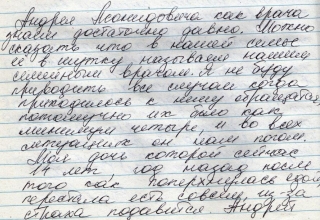 Андрея Леонидовича как врача
знаем достаточно давно. Можно
сказать что в нашей семье
её в шутку называем нашим
семейным врачом. Я не буду
приводить все случаи когда
приходилось к нему обращаться,
потому что их было как
минимум четыре, и во всех
ситуациях он нам помог.
Моя дочь которой сейчас
14 лет, год назад после
того как поперхнулась едой,
перестала есть совсем из-за
страха подавится Андрей